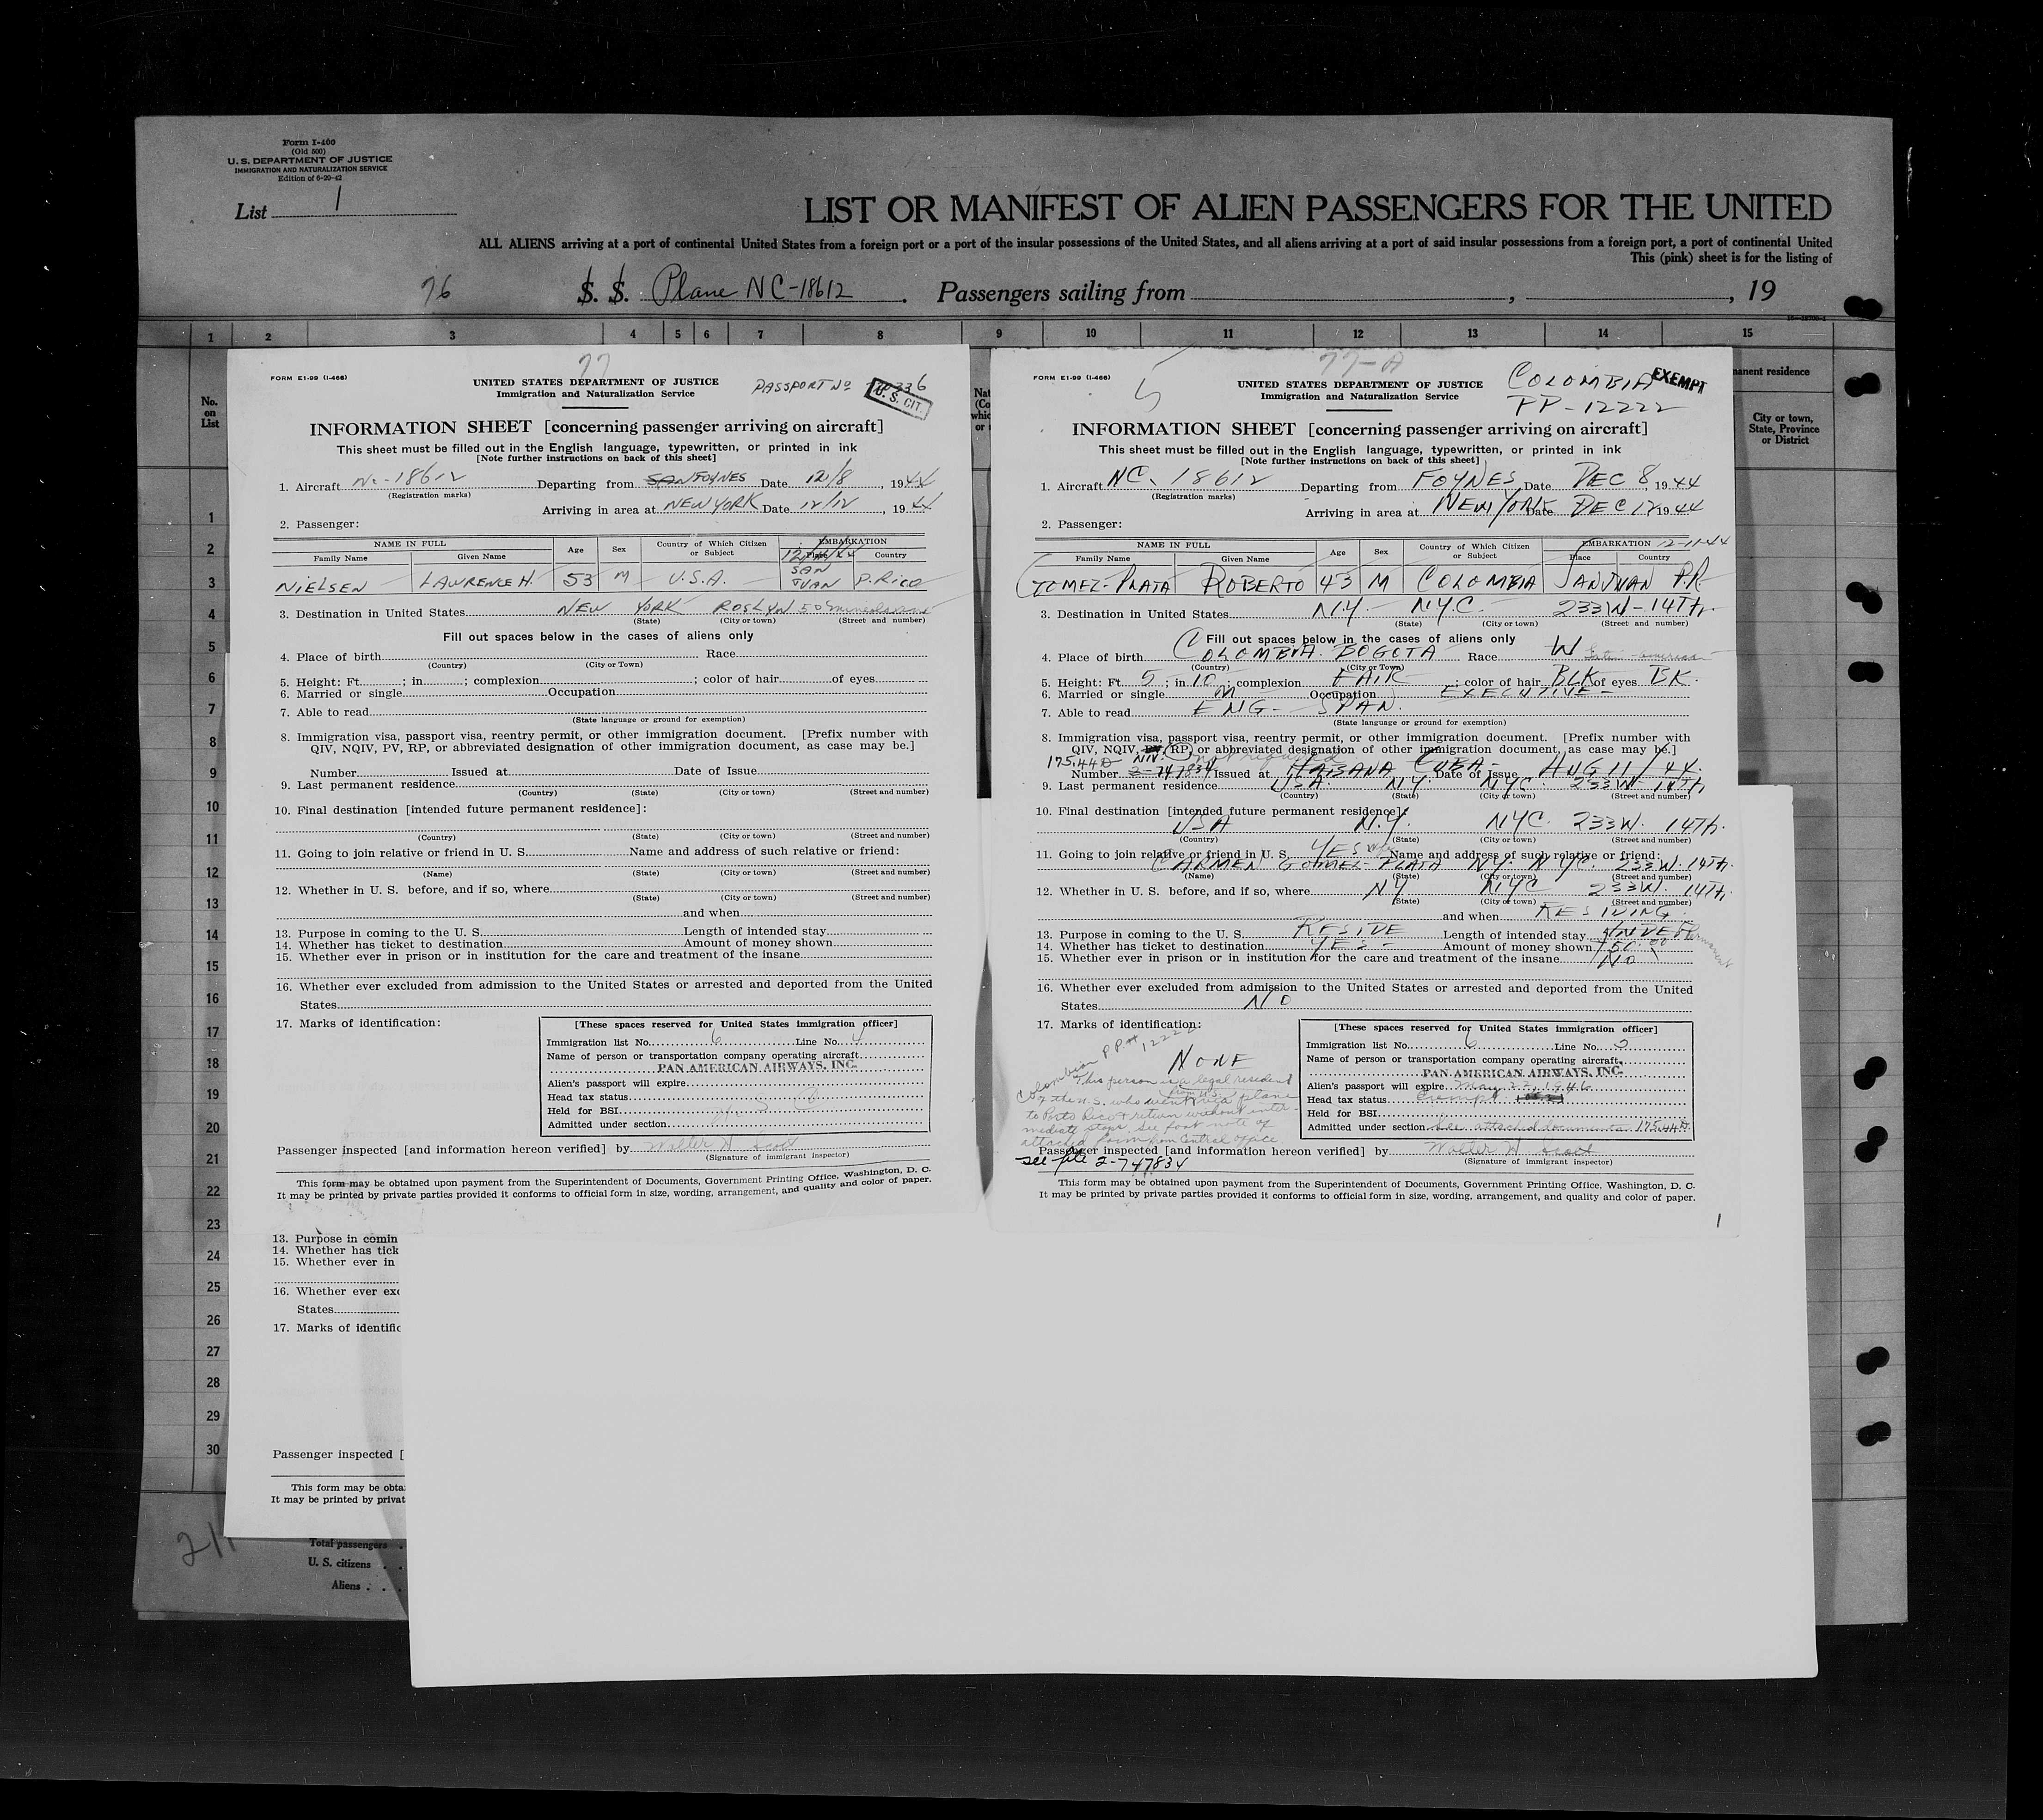 Form I-400
(Old 500)
U. S. DEPARTMENT OF JUSTICE
IMMIGRATION AND NATURALIZATION SERVICE
Edition of 6-20-42
List 1
LIST OR MANIFEST OF ALIEN PASSENGERS FOR THE UNITED
ALL ALIENS arriving at a port of continental United States from a foreign port or a port of the insular possessions of the United States, and all aliens arriving at a port of said insular possessions from a foreign port, a port of continental United
This (pink) sheet is for the listing of
76 S. S. Plane NC-18612. Passengers sailing from , , 19
1 2 3 4 5 6 7 8 9 10 11 12 13 14 15
No. on List
manent residence
City or town, State, Province or District
1
2
3
4
5
6
7
8
9
10
11
12
13
14
15
16
17
18
19
20
21
22
23
24
25
26
27
28
29
30
77
FORM E1-99 (I-466)
UNITED STATES DEPARTMENT OF JUSTICE
Immigration and Naturalization Service
PASSPORT No
U. S. CIT.
INFORMATION SHEET [concerning passenger arriving on aircraft]
This sheet must be filled out in the English language, typewritten, or printed in ink
[Note further instructions on back of this sheet]
1. Aircraft NC-18612 Departing from FOYNES Date 12/8, 1944
(Registration marks)
Arriving in area at NEW YORK Date 12/12, 1944
2. Passenger:
NAME IN FULL Age Sex Country of Which Citizen or Subject EMBARKATION
Family Name Given Name Place Country
NIELSEN LAWRENCE H. 53 M U.S.A. SAN JUAN P. RICO
3. Destination in United States NEW YORK ROSLYN 50
(State) (City or town) (Street and number)
Fill out spaces below in the cases of aliens only
4. Place of birth Race
(Country) (City or Town)
5. Height: Ft. ; in ; complexion ; color of hair of eyes
6. Married or single Occupation
7. Able to read
(State language or ground for exemption)
8. Immigration visa, passport visa, reentry permit, or other immigration document. [Prefix number with
QIV, NQIV, PV, RP, or abbreviated designation of other immigration document, as case may be.]
Number Issued at Date of Issue
9. Last permanent residence
(Country) (State) (City or town) (Street and number)
10. Final destination [intended future permanent residence]:
(Country) (State) (City or town) (Street and number)
11. Going to join relative or friend in U. S. Name and address of such relative or friend:
(Name) (State) (City or town) (Street and number)
12. Whether in U. S. before, and if so, where
(State) (City or town) (Street and number)
and when
13. Purpose in coming to the U. S. Length of intended stay
14. Whether has ticket to destination Amount of money shown
15. Whether ever in prison or in institution for the care and treatment of the insane
16. Whether ever excluded from admission to the United States or arrested and deported from the United
States
17. Marks of identification:
[These spaces reserved for United States immigration officer]
Immigration list No. 6 Line No. 4
Name of person or transportation company operating aircraft
PAN AMERICAN AIRWAYS, INC.
Alien's passport will expire
Head tax status
Held for BSI
Admitted under section
Passenger inspected [and information hereon verified] by Walter H Scott
(Signature of immigrant inspector)
This form may be obtained upon payment from the Superintendent of Documents, Government Printing Office, Washington, D. C.
It may be printed by private parties provided it conforms to official form in size, wording, arrangement, and quality and color of paper.
13. Purpose in comin
14. Whether has tick
15. Whether ever in
16. Whether ever exc
States
17. Marks of identific
Passenger inspected [
This form may be obta
It may be printed by privat
Total passengers
U. S. citizens
Aliens
77-A
FORM E1-99 (I-466)
5
UNITED STATES DEPARTMENT OF JUSTICE
Immigration and Naturalization Service
COLOMBIA EXEMPT
PP-12222
INFORMATION SHEET [concerning passenger arriving on aircraft]
This sheet must be filled out in the English language, typewritten, or printed in ink
[Note further instructions on back of this sheet]
1. Aircraft NC. 18612 Departing from FOYNES Date DEC 8, 1944
(Registration marks)
Arriving in area at NEW YORK Date DEC 12 1944
2. Passenger:
NAME IN FULL Age Sex Country of Which Citizen or Subject EMBARKATION 12-11-44
Family Name Given Name Place Country
GOMEZ-PLATA ROBERTO 43 M COLOMBIA SAN JUAN P.R.
3. Destination in United States N.Y. N.Y.C. 233 W-14Th.
(State) (City or town) (Street and number)
Fill out spaces below in the cases of aliens only
4. Place of birth COLOMBIA. BOGOTA Race W
(Country) (City or Town)
5. Height: Ft. 5 ; in 10 ; complexion FAIR ; color of hair BLK of eyes BK.
6. Married or single M Occupation EXECUTIVE-
7. Able to read ENG- SPAN.
(State language or ground for exemption)
8. Immigration visa, passport visa, reentry permit, or other immigration document. [Prefix number with
QIV, NQIV, PV, RP, or abbreviated designation of other immigration document, as case may be.]
175.44D NIV. not required
Number 2-747834 Issued at HABANA CUBA- Date of Issue AUG 11/44.
9. Last permanent residence USA. N.Y. NYC. 233 W- 14Th
(Country) (State) (City or town) (Street and number)
10. Final destination [intended future permanent residence]:
USA N.Y. NYC. 233 W. 14Th.
(Country) (State) (City or town) (Street and number)
11. Going to join relative or friend in U. S. YES wife Name and address of such relative or friend:
CARMEN GOMEZ-PLATA NY. N.YC. 233 W. 14Th.
(Name) (State) (City or town) (Street and number)
12. Whether in U. S. before, and if so, where NY NYC 233 W. 14Th.
(State) (City or town) (Street and number)
and when RESIDING
13. Purpose in coming to the U. S. RESIDE Length of intended stay Permanent
14. Whether has ticket to destination YES- Amount of money shown
15. Whether ever in prison or in institution for the care and treatment of the insane NO
16. Whether ever excluded from admission to the United States or arrested and deported from the United
States NO
17. Marks of identification:
NONE
Colombian P.P.# 12222
This person is a legal resident
of the U.S. who went from U.S. via plane
to Porto Rico & return without inter-
mediate stops. See foot note of
attached form from Central Office
see file 2-747834
[These spaces reserved for United States immigration officer]
Immigration list No. 6 Line No. 5
Name of person or transportation company operating aircraft
PAN AMERICAN AIRWAYS, INC.
Alien's passport will expire May 22, 1946
Head tax status Exempt
Held for BSI
Admitted under section See attached documents 175.44D
Passenger inspected [and information hereon verified] by Walter H Scott
(Signature of immigrant inspector)
This form may be obtained upon payment from the Superintendent of Documents, Government Printing Office, Washington, D. C.
It may be printed by private parties provided it conforms to official form in size, wording, arrangement, and quality and color of paper.
1